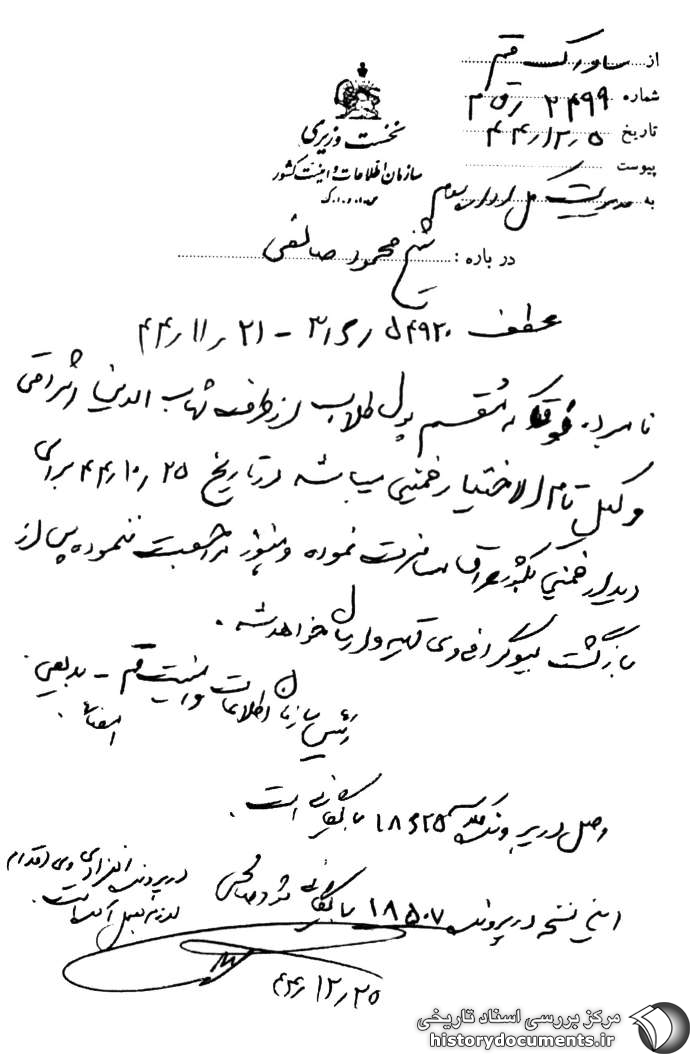 از ساواک قم
شماره ۲۴۹۹ / ق م
تاریخ ۴۴/۱۲/۵
پیوست
به مدیریت کل اداره سوم
نخست وزیری
سازمان اطلاعات و امنیت کشور
س.ا.و.ا.ک
درباره: شیخ محمود صالحی
عطف ۵۴۹۲۰ / ۳۱۶ - ۴۴/۱۱/۲۱
نامبرده فوق که مقسم پول طلاب از طرف شهاب الدین اشراقی
وکیل تام الاختیار خمینی میباشد در تاریخ ۴۴/۱۰/۲۵ برای
دیدار خمینی بکشور عراق مسافرت نموده و هنوز مراجعت ننموده پس از
بازگشت بیوگرافی وی تهیه و ارسال خواهد شد.
رئیس سازمان اطلاعات و امنیت قم - بدیعی
امضاء
اصل در پرونده ۱۸۶۲۵ بایگانی است.
این نسخه در پرونده ۱۸۵۰۷ بایگانی شود صالحی
در پرونده انفرادی وی اقدام
لازم بعمل آمده است.
۴۴/۱۲/۲۵
مرکز بررسی اسناد تاریخی
historydocuments.ir